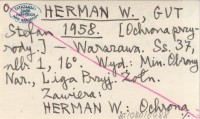 HERMAN W., GUT
Stefan 1958. [Ochrona przy-
rody.] — Warszawa. Ss. 37,
nlb 1, 16°. Wyd.: Min. Obrony
Nar., Liga Przyj. Żołn.
Zawiera:
HERMAN W.: Ochrona